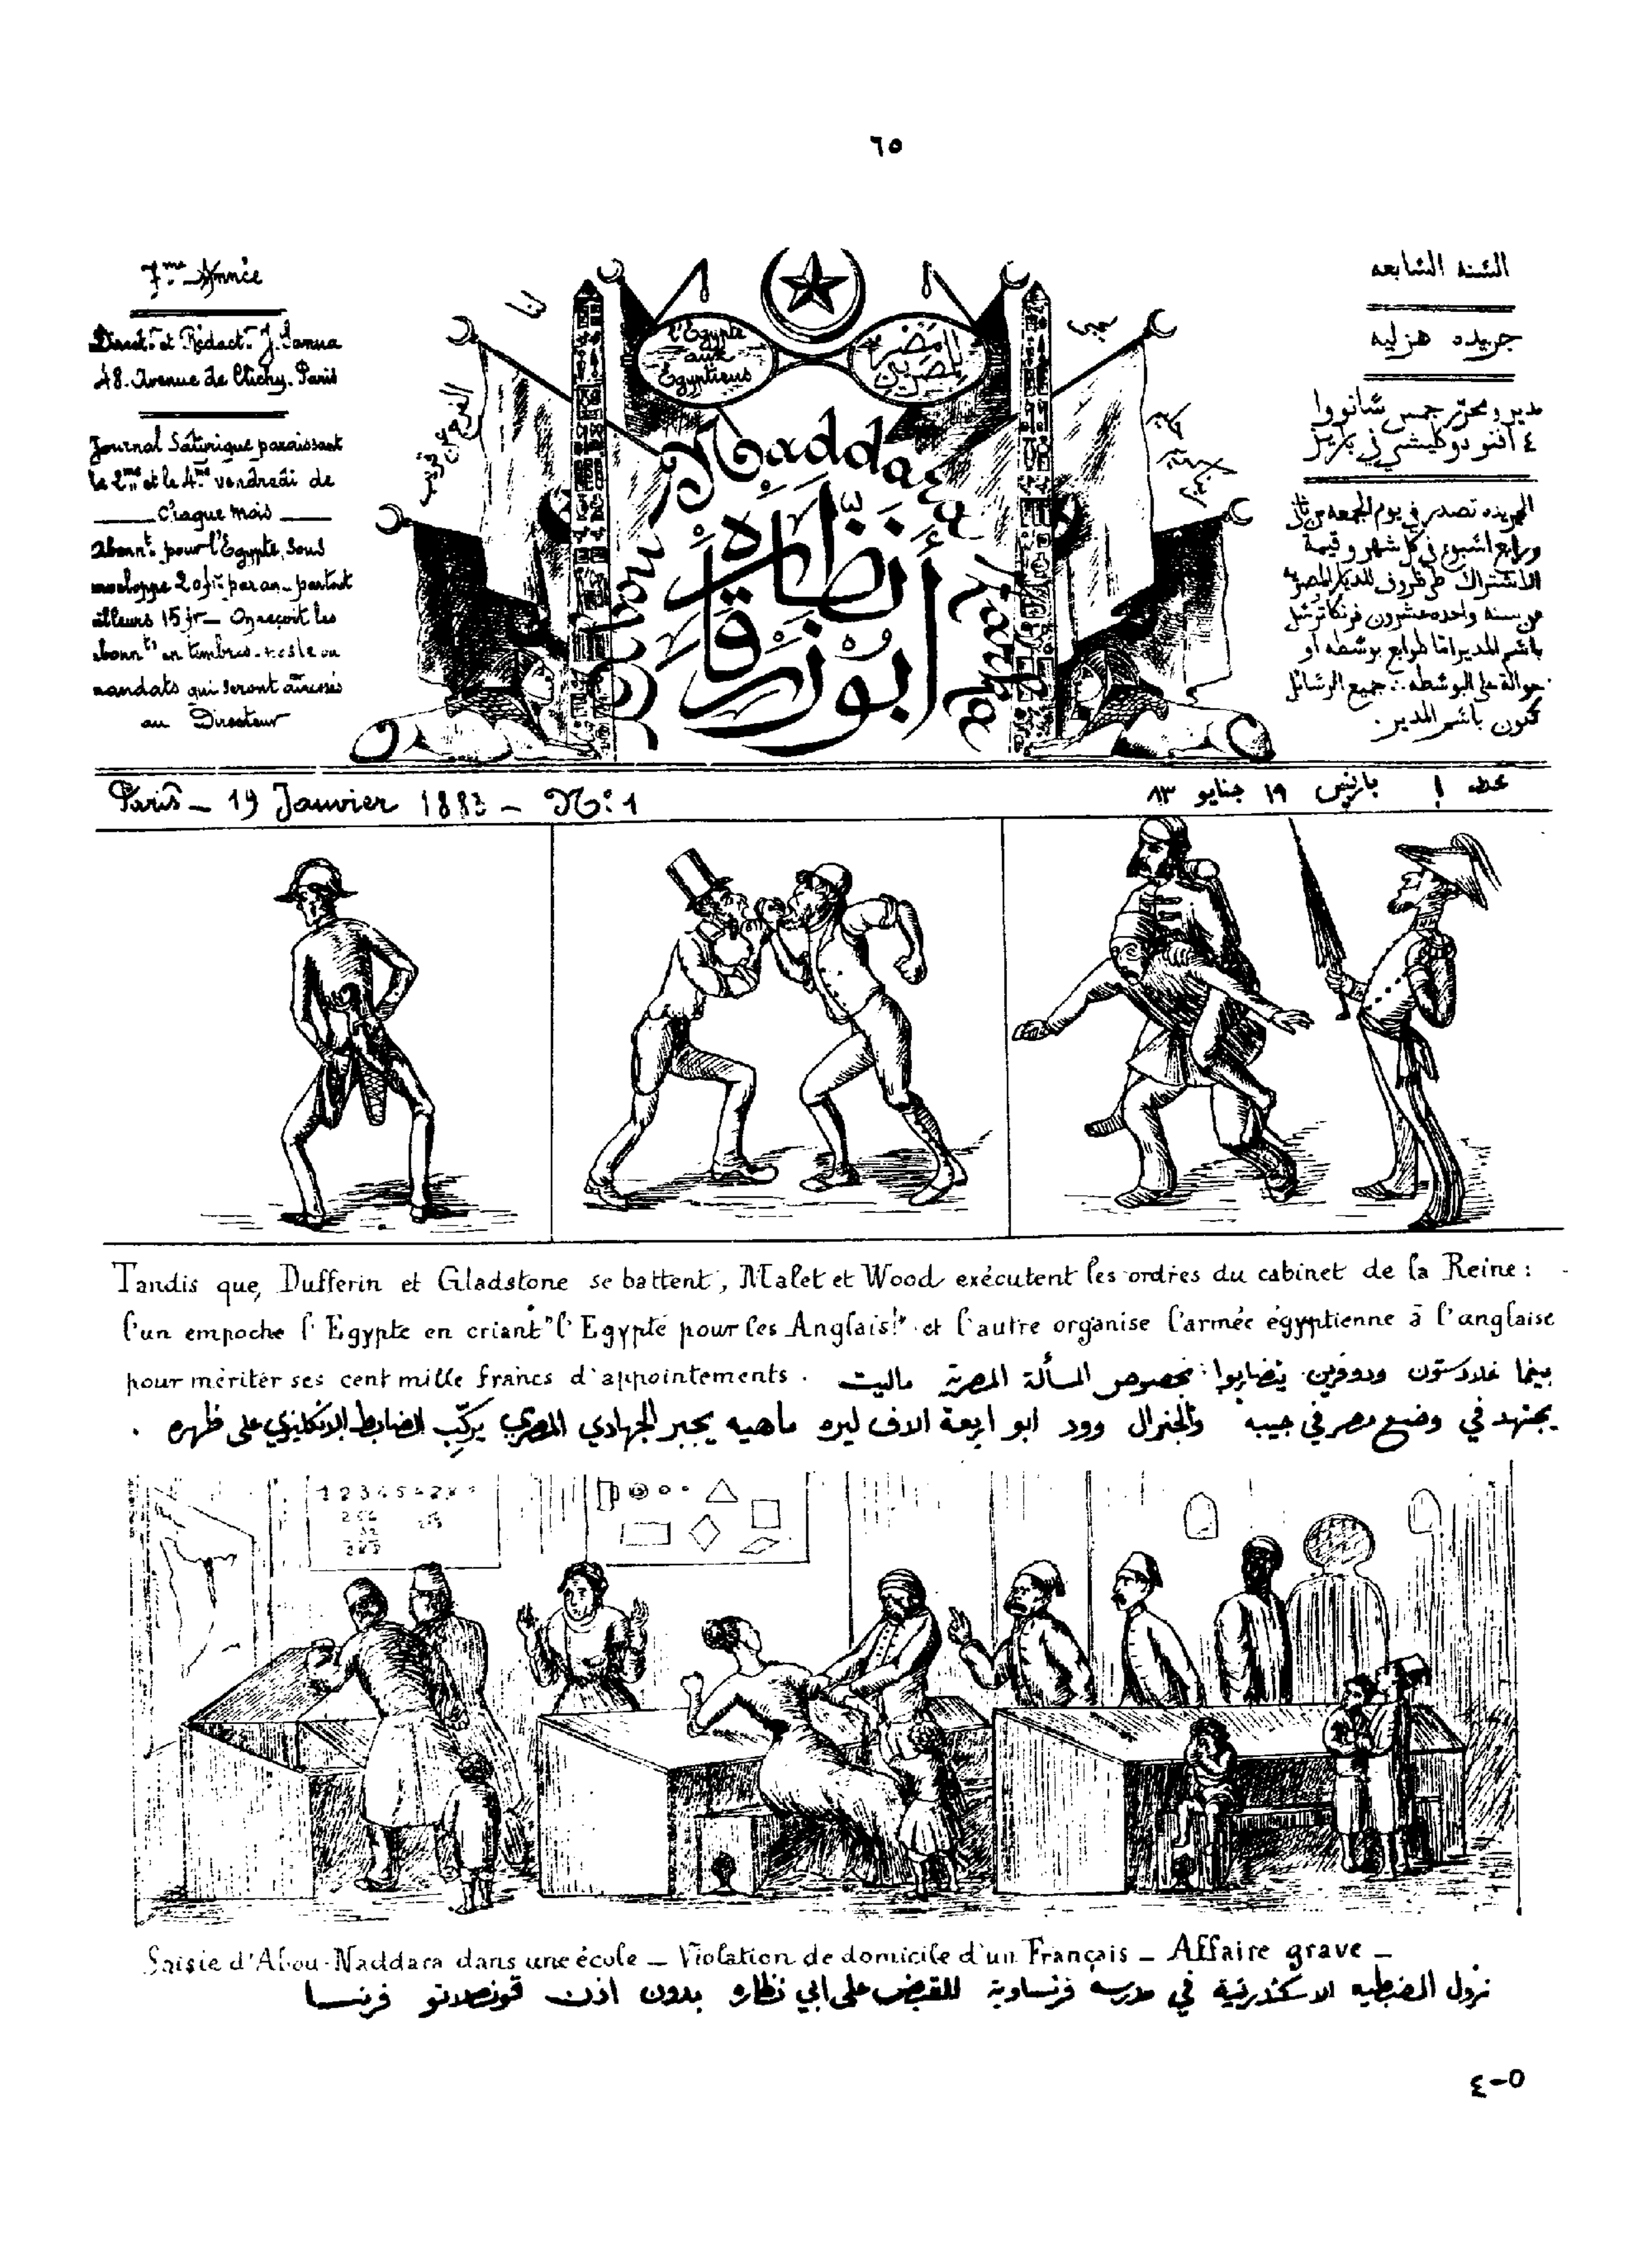 ٦٥
7me Année
Direct. et Rédact. J. Sanua
48. Avenue de Clichy. Paris
Journal Satirique paraissant
le 2me et le 4me vendredi de
chaque mois
Abonnt. pour l'Egypte, sous
enveloppe 20 fr. par an_ partout
ailleurs 15 fr_ On reçoit les
abonnts en timbres-poste ou
mandats qui seront adressés
au Directeur
l'Egypte
aux
Egyptiens
مصر
للمصريين
Abou Naddara Zarka
أبو نظارة
زرقا
السنه السابعه
جريده هزليه
مدير ومحرر جمس سانووا
في باريز
الجريده تصدر في يوم الجمعه من ثاني
ورابع اسبوع في كل شهر وقيمة
الاشتراك
عن سنه واحده عشرون فرنكا ترسل
باسم المدير اما طوابع بوسطه او
حوالة على البوسطه جميع الرسائل
تكون باسم المدير.
Paris_ 19 Janvier 1883 _ No: 1
عدد ١ باريس ١٩ جنايو ٨٣
Tandis que, Dufferin et Gladstone se battent, Malet et Wood exécutent les ordres du cabinet de la Reine :
l'un empoche l'Egypte en criant "l'Egypte pour les Anglais!" et l'autre organise l'armée égyptienne à l'anglaise
pour mériter ses cent mille francs d'appointements .
بينما غلادستون ودوفرين يتضاربوا بخصوص المسألة المصرية ماليت
يجتهد في وضع مصر في جيبه والجنرال وود ابو اربعة الاف ليره ماهيه يجبر الجهادي المصري يركّب الضابط الانكليزي على ظهره .
Saisie d'Abou-Naddara dans une école _ Violation de domicile d'un Français _ Affaire grave _
نزول الضبطيه الاسكندرنية في مدرسة فرنساوية للقبض على ابي نظاره بدون اذن قونصلاتو فرنسا
٤-٥